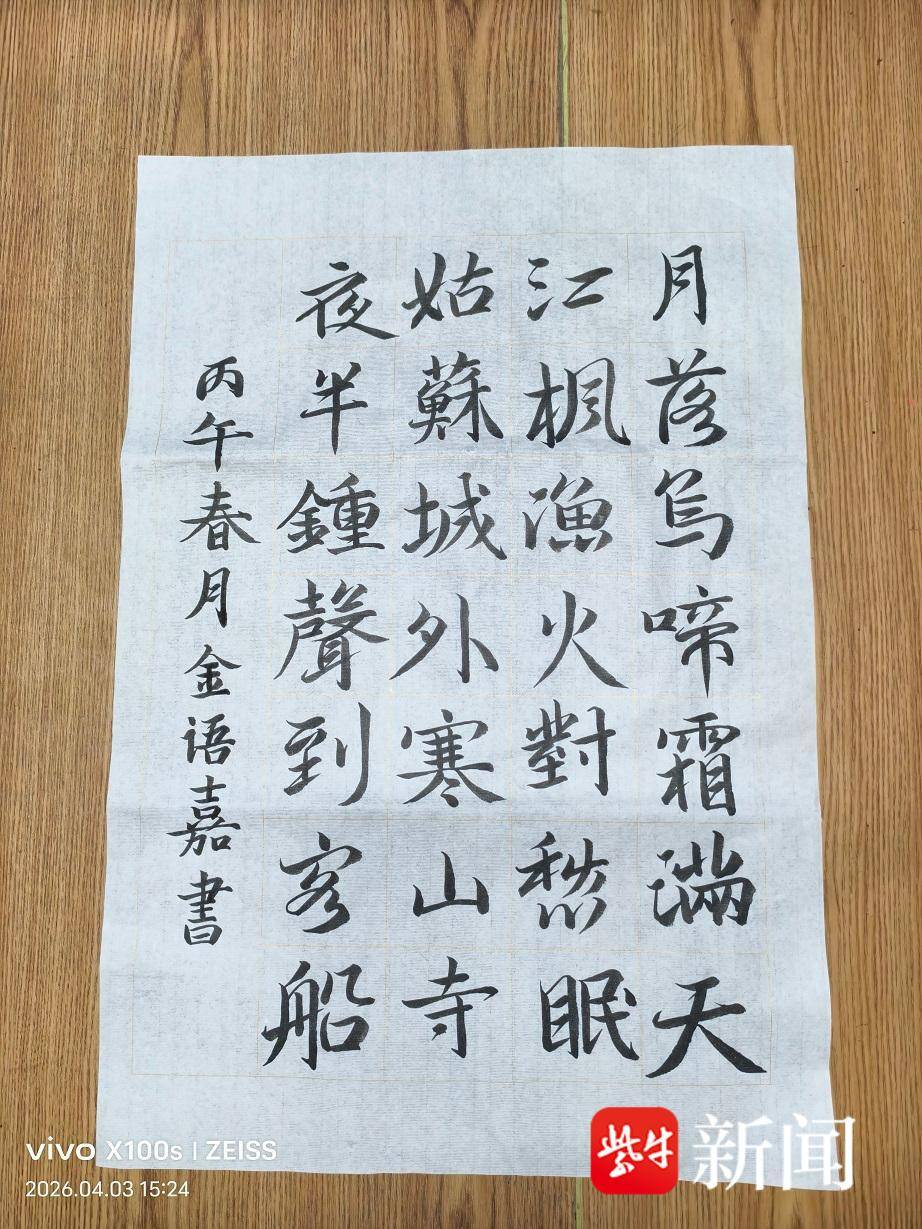 月落烏啼霜滿天
江楓漁火對愁眠
姑蘇城外寒山寺
夜半鍾聲到客船
丙午春月金语嘉書
vivo X100s | ZEISS
2026.04.03 15:24
紫牛新闻